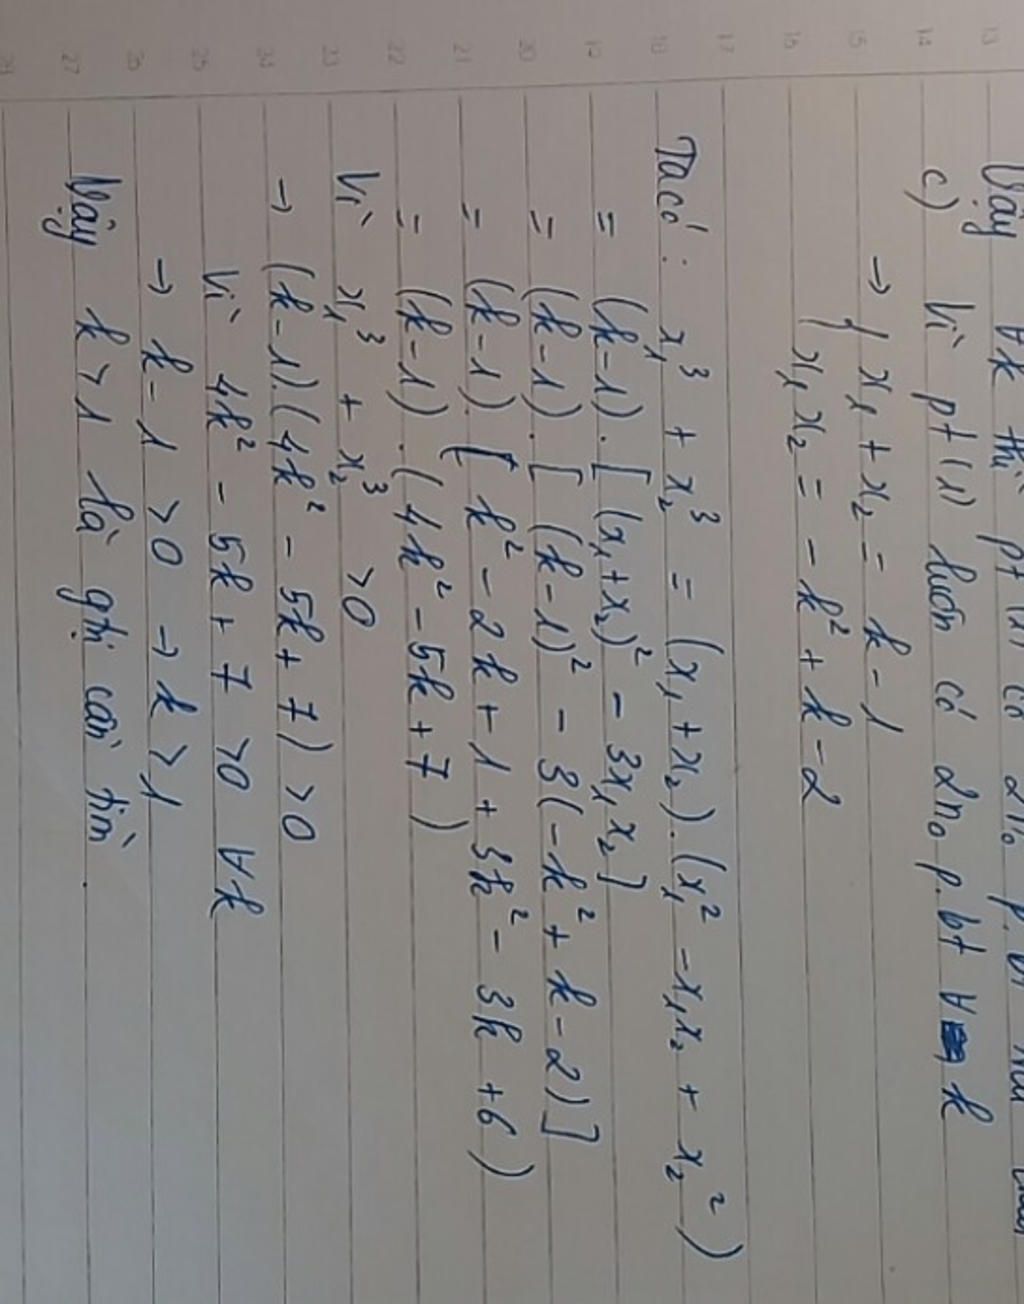 Vậy ∀k thì pt (1) có 2no p.bt
c) Vì pt (1) luôn có 2no p.bt ∀ k
→ { x₁ + x₂ = k - 1
x₁x₂ = - k² + k - 2
Ta có: x₁³ + x₂³ = (x₁ + x₂).(x₁² - x₁x₂ + x₂²)
= (k-1).[(x₁+x₂)² - 3x₁x₂]
= (k-1).[(k-1)² - 3(-k² + k - 2)]
= (k-1).(k² - 2k + 1 + 3k² - 3k + 6)
= (k-1).(4k² - 5k + 7)
Vì x₁³ + x₂³ > 0
→ (k-1).(4k² - 5k + 7) > 0
Vì 4k² - 5k + 7 > 0 ∀k
→ k - 1 > 0 → k > 1
Vậy k > 1 là gtrị cần tìm.
13
14
15
16
17
18
19
20
21
22
23
24
25
26
27
28